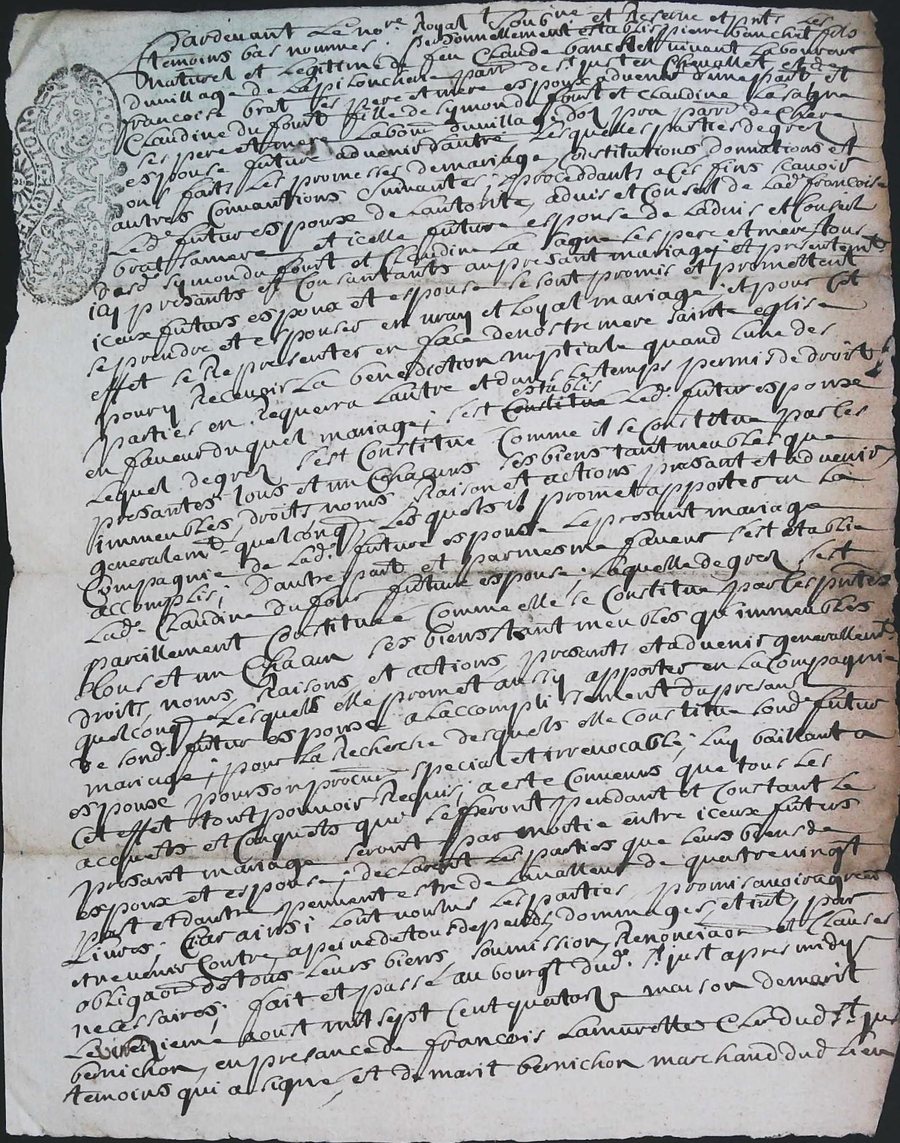 Pardevant Le no.re Royal soubsigné et Reservé et p.nts Les
temoins bas nommés personnellement establis pierre banchet fils
naturel et Legitime de feu Claude banchet vivant Laboureur
du village de La pilonchere parr. de st just en Chevallet, et de
francoise brat ses pere et mere espoux advenir d'une part et
Claudine du foust fille de symond du foust et Claudine Lasagne
ses pere et mere Labour. du village parr. de Chere
espouse future advenir d'autre Lesquelles parties de gred
ont faits Les promesses de mariage, Constitutions, donnations et
autres Convantions suivantes; procedants a Ces fins scavoir
Led. futur espoux de Lautorité, advis et Conseil de Lad. francoise
brat sa mere et icelle future espouse de Ladvis et Conseil
desd symond du foust et Claudine La sagne ses pere et mere tous
icy presants et Consantants au presant mariage; et presentem.t
iceux futurs espoux et espouse se sont promis et promettent
se prendre et espouser en vray et Loyal mariage; et pour Cet
effet se Representer en face de nostre mere sainte eglise
pour y Recevoir La benediction nuptiale quand Lune des
parties en Requerra Lautre et dans Le temps permis de droit
en faveur duquel mariage; sest establis Constitué Led. futur espoux
Lequel de gred sest Constitué Comme il se Constitue par Les
presantes tous et un Chacuns ses biens tant meubles que
immeubles, droits noms Raison et actions presant et advenir
generalem.t quelconq. Lesquels il promet apporter en La
Compagnie de Lad. future espouse Le presant mariage
accomplis; Dautre part et par mesme faveur sest etablie
Lad. Claudine du foust future espouse; Laquelle de gred sest
pareillement Constituée Comme elle se Constitue par Les p.ntes
tous et un Chacun ses biens tant meubles qu'immeubles
droits, noms, Raisons et actions presants et advenir generallem.t
quelconq. Lesquels elle promet aussy apporter en La Compagnie
de sond. futur espoux a Laccomplissement du presant
mariage; pour La Recherche desquels elle Constitue sond. futur
espoux pour son procur. special et irrevocable; Luy baillant a
Cet effet tout pouvoir Requis; a esté Convenus que tous Les
acquets et Conquets qui se feront pendant et Constant Le
presant mariage seront par moitié entre iceux futurs
espoux et espouse; declarent Les parties que Leurs biens de
part et dautre peuvent estre de La valleur de quatre vingt
Livres; Car ainsi; Lont voulus Les parties, promis avoir agreés
et ne venir Contre, a peine de tous depends, dommages, et int. par
obliga.on de tous Leurs biens, soumission, Renoncia.on et Clauses
necessaires; fait et passé au bourgt dud. st just apres midy
Le vieme aoust mil sept Cent quatorze maison demarit
bernichon, en presance de francois Lamurettes Clerc dud st just
temoins qui a signé, et demarit bernichon marchand dud Lieu